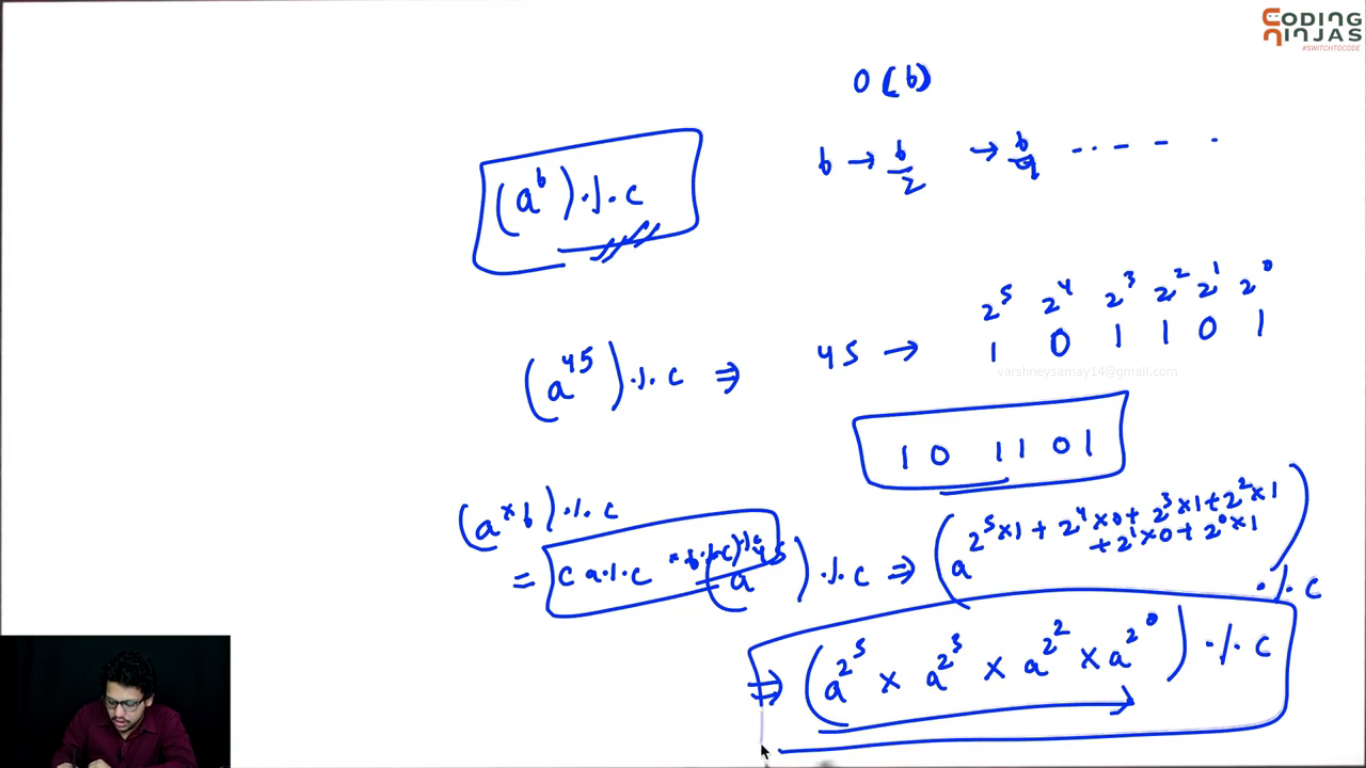 CODING
NINJAS
#SWITCHTOCODE
O(b)
b → b/2 → b/4 ... - - .
(a^b) % c
2^5 2^4 2^3 2^2 2^1 2^0
(a^45) % c ⇒ 45 → 1 0 1 1 0 1
varshneysamay14@gmail.com
1 0 1 1 0 1
(a × b) % c
= (a % c * b % c) % c
(a^45) % c ⇒ (a^(2^5×1 + 2^4×0 + 2^3×1 + 2^2×1 + 2^1×0 + 2^0×1)) % c
⇒ (a^2^5 × a^2^3 × a^2^2 × a^2^0) % c